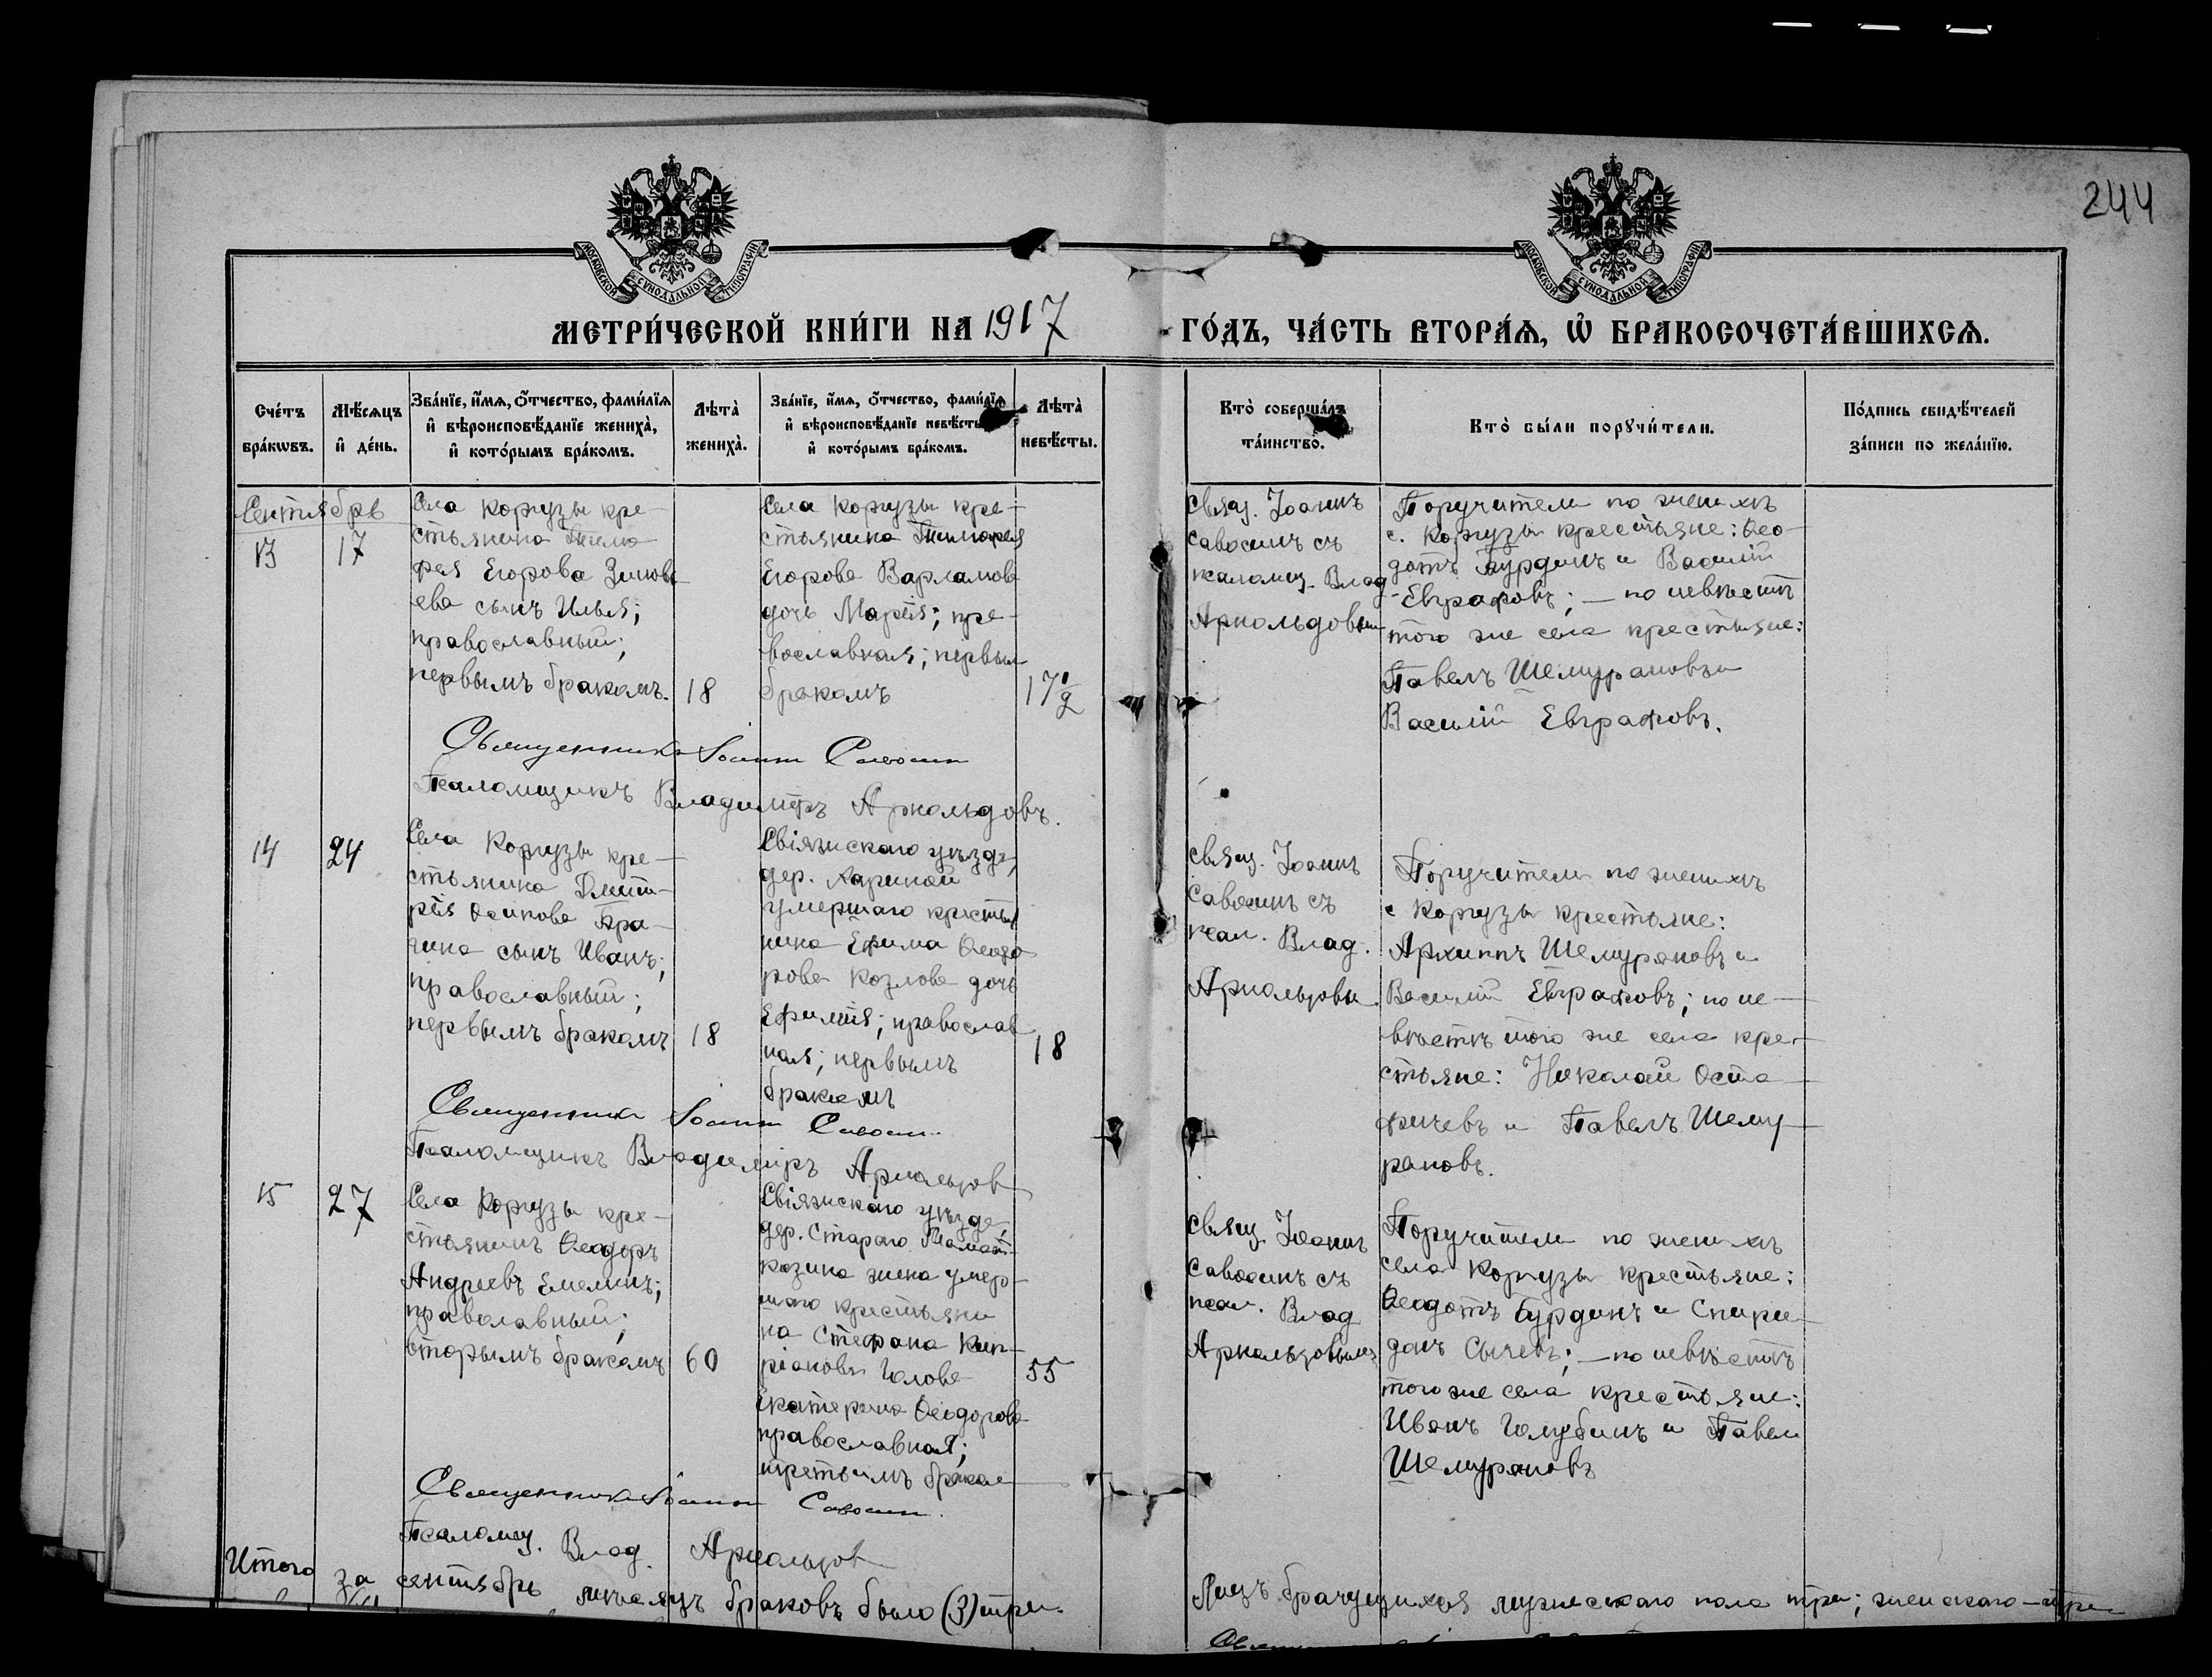 244
МОСКОВСКОЙ СУНОДАЛЬНОЙ ТИПОГРАФІИ
МОСКОВСКОЙ СУНОДАЛЬНОЙ ТИПОГРАФІИ
МЕТРИ́ЧЕСКОЙ КНИ́ГИ НА 1917
ГО́ДЪ, ЧА́СТЬ ВТОРА́Ѧ, Ѡ҆ БРАКОСОЧЕТА́ВШИХСѦ.
Сче́тъ
бра́кѡвъ.
Мѣ́сѧцъ
и҆ де́нь.
Зва́нїе, и҆́мѧ, о҆́тчество, фами́лїѧ
и҆ вѣроисповѣ́данїе жениха̀,
и҆ кото́рымъ бра́комъ.
Лѣта̀
жениха̀.
Зва́нїе, и҆́мѧ, о҆́тчество, фами́лїѧ
и҆ вѣроисповѣ́данїе невѣ́сты,
и҆ кото́рымъ бра́комъ.
Лѣта̀
невѣ́сты.
Кто̀ соверша́лъ
та́инство̀.
Кто̀ бы́ли порꙋчи́тели.
По́дпись свидѣ́телей
за́писи по жела́нїю.
Сентябрь
13
17
Села Коргузы кре-
стьянина Тимо
фея Егорова Зиновь
ева сынъ Илья;
православный;
первымъ бракомъ.
18
Села Коргузы кре-
стьянина Тимофея
Егорова Варламова
дочь Марія; пра-
вославная; первым
бракомъ
17 1/2
Свящ. Іоаннъ
Савосинъ съ
псаломщ. Влад
Арнольдовым
Поручители по женихѣ
с. Коргузы крестьяне: Ѳео-
дотъ Бурдинъ и Василій
Евграфовъ; — по невѣстѣ
того же села крестьяне:
Павелъ Шемурановъ и
Василій Евграфовъ.
Священникъ Іоаннъ Савосинъ
Псаломщикъ Владиміръ Арнольдовъ.
14
24
Села Коргузы кре-
стьянина Дмит-
рія Осипова Бра-
гина сынъ Иванъ;
православный;
первымъ бракомъ
18
Свіяжскаго уѣзда,
дер.
умершаго крестья
нина Ефима Ѳеодо
рова Козлова дочь
Ефимія; православ
ная; первымъ
бракомъ
18
Свящ. Іоаннъ
Савосинъ съ
псал. Влад.
Арнольдовы
Поручители по женихѣ
с Коргузы крестьяне:
Архиппъ Шемурановъ и
Василій Евграфовъ; по не-
вѣстѣ того же села кре-
стьяне: Николай Оста-
фичевъ и Павелъ Шему-
рановъ.
Священникъ Іоаннъ Савосин.
Псаломщикъ Владиміръ Арнольдов
15
27
Села Коргузы кре-
стьянинъ Ѳеодоръ
Андреевъ Емелинъ;
православный;
вторымъ бракомъ
60
Свіяжскаго уѣзда,
дер. Стараго
козина жена умер-
шаго крестьяни
на Стефана Кип-
ріанова
Екатерина Ѳеодорова
православная;
третьимъ бракам
55
Свящ. Іоаннъ
Савосинъ съ
псал. Влад
Арнольдовымъ
Поручители по женихѣ
села Коргузы крестьяне:
Ѳеодотъ Бурдинъ и Спири-
донъ Сычевъ; — по невѣстѣ
того же села крестьяне:
Иванъ Голубинъ и Павел
Шемурановъ
Священникъ Іоаннъ Савосин.
Псаломщ. Влад. Арнольдов
Итого за сентябрь мѣсяцъ браковъ было (3) три.
Лицъ брачущихся мужескаго пола три; женскаго — три